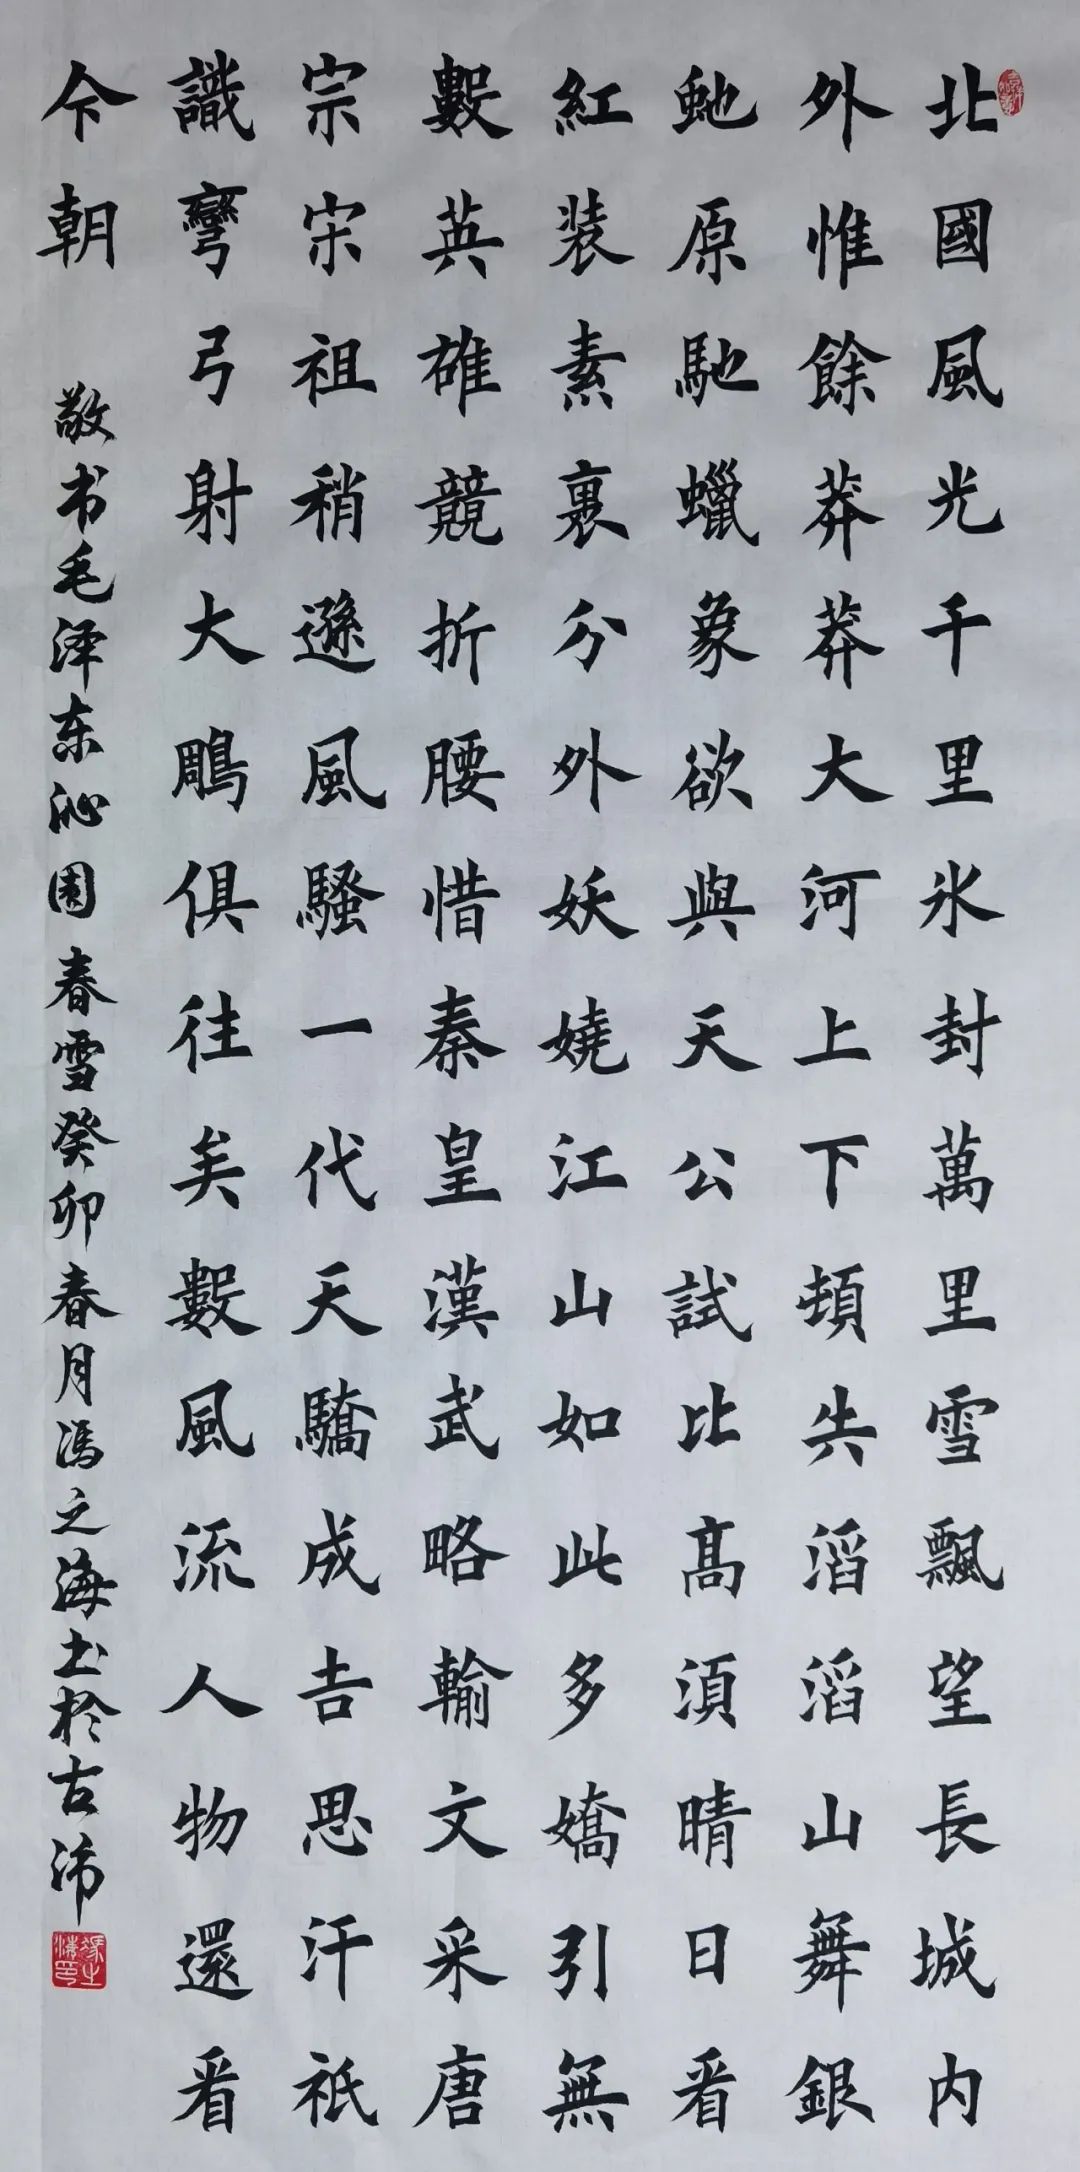 北國風光千里氷封萬里雪飄望長城内
外惟餘莽莽大河上下頓失滔滔山舞銀
虵原馳蠟象欲與天公試比髙湏晴日看
紅装素裹分外妖嬈江山如此多嬌引無
數英雄競折腰惜秦皇漢武略輸文采唐
宗宋祖稍遜風騷一代天驕成吉思汗祇
識彎弓射大鵰俱往矣數風流人物還看
今朝
敬书毛泽东沁园春雪癸卯春月冯之海书於古沛